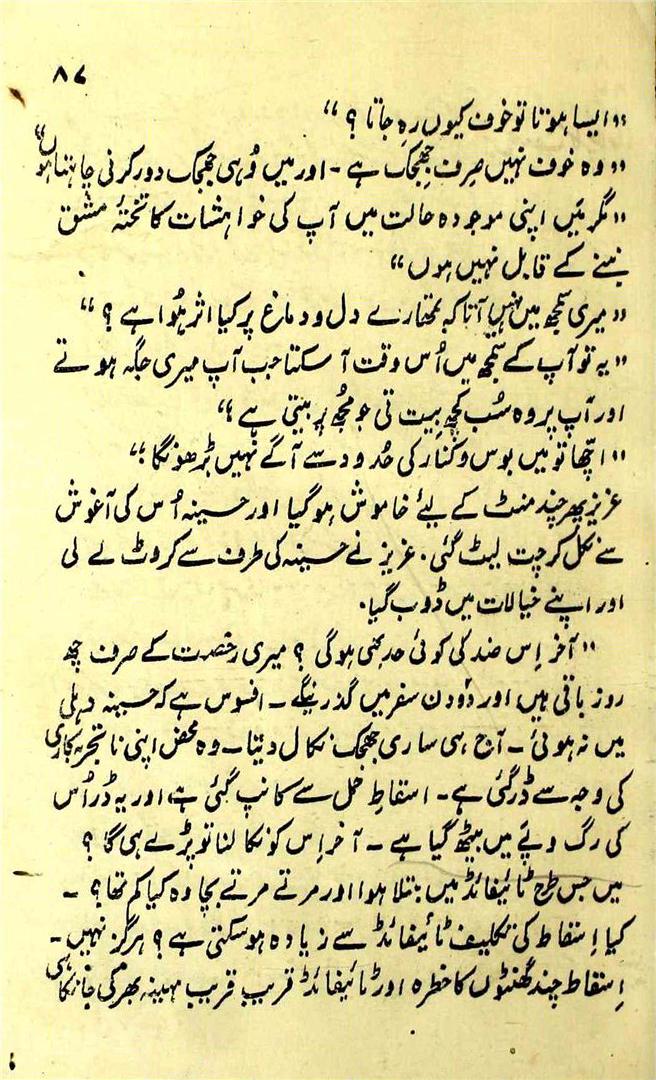 ۸۷
"ایسا ہوتا تو خوف کیوں رہ جاتا ؟"
"وہ خوف نہیں صِرف جھِجک ہے - اور میں وُہی جھجک دور کرنی چاہتا ہوں"
"مگر مَیں اپنی موجودہ حالت میں آپ کی خواہشات کا تختۂ مشق
بننے کے قابل نہیں ہوں"
"میری سمجھ میں نہیں آتا کہ تمھارے دل و دماغ پر کیا اثر ہُوا ہے ؟"
"یہ تو آپ کے سمجھ میں اُس وقت آ سکتا جب آپ میری جگہ ہوتے
اور آپ پر وہ سُب کچھ بیت تی جو مجھُ پر بیتی ہے ؟"
"اچّھا تو میں بوس و کنار کی حُدود سے آگے نہیں بڑھونگا ؛"
عزیز پھر چند منٹ کے لئے خاموش ہوگیا اور حسینہ اُس کی آغوش
سے نکل کر چت لیٹ گئی . عزیز نے حسینہ کی طرف سے کروٹ لے لی
اور اپنے خیالات میں ڈوب گیا .
"آخر اِس ضد کی کوئی حد بھی ہوگی ؟ میری رخصت کے صرف چھ
روز باقی ہیں اور دٗو دن سفر میں گذرینگے - افسوس ہے کہ حسینہ دہلی
میں نہ ہوئی - آج ہی ساری جھجک نکال دیتا - وہ محض اپنی ناتجربہ کاری
کی وجہ سے ڈرگئی ہے - اسقاطِ حمل سے کانپ گئی ہے، اور یہ ڈر اُس
کی رگ و پَے میں بیٹھ گیا ہے - آخر اِس کو نکالنا تو پڑے ہی گا ؟
میں جس طرح ٹائیفائڈ میں مبتلا ہوا اور مرتے مرتے بچا وہ کیا کم تھا ؟ -
کیا اِسقاط کی تکلیف ٹائیفائڈ سے زیادہ ہوسکتی ہے ؟ ہرگز نہیں -
اِسقاط چند گھنٹوں کا خطرہ اور ٹائیفائڈ قریب قریب مہینہ بھر کی جانکاہی